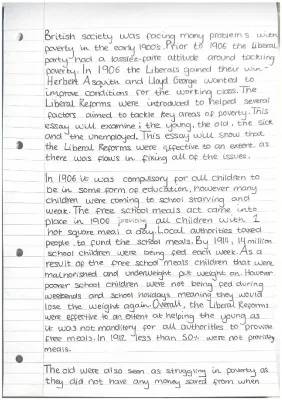 British society was facing many problems with
poverty in the early 1900s. Prior to 1906 the liberal
party had a lassiez-faire attitude around tackling
poverty. In 1906 the Liberals gained their win -
Herbert Asquith and Lloyd George wanted to
improve conditions for the working class. The
Liberal Reforms were introduced to helped several
factors aimed to tackle key areas of poverty. This
essay will examine: the young, the old, the sick
and the unemployed. This essay will show that
the Liberal Reforms were effective to an extent as
there was flaws in fixing all of the issues.
In 1906 it was compulsory for all children to
be in some form of education, however many
children were coming to school starving and
weak. The free school meals act came into
place in 1906 all children with 1
hot square meal a day. Local authorities taxed
people to fund the school meals. By 1914, 14 million
school children were being fed each week. As a
result of the free school meals children that were
malnorished and underweight put weight on. However
poorer school children were not being fed during
weekends and school holidays meaning they would
lose the weight again. Overall, the Liberal Reforms
were effective to an extent at helping the young as
it was not manditory for all authorities to provide
free meals. In 1912 less than 50% were not
meals.
The old were also seen as struggling in poverty as
they did not have any money saved from when